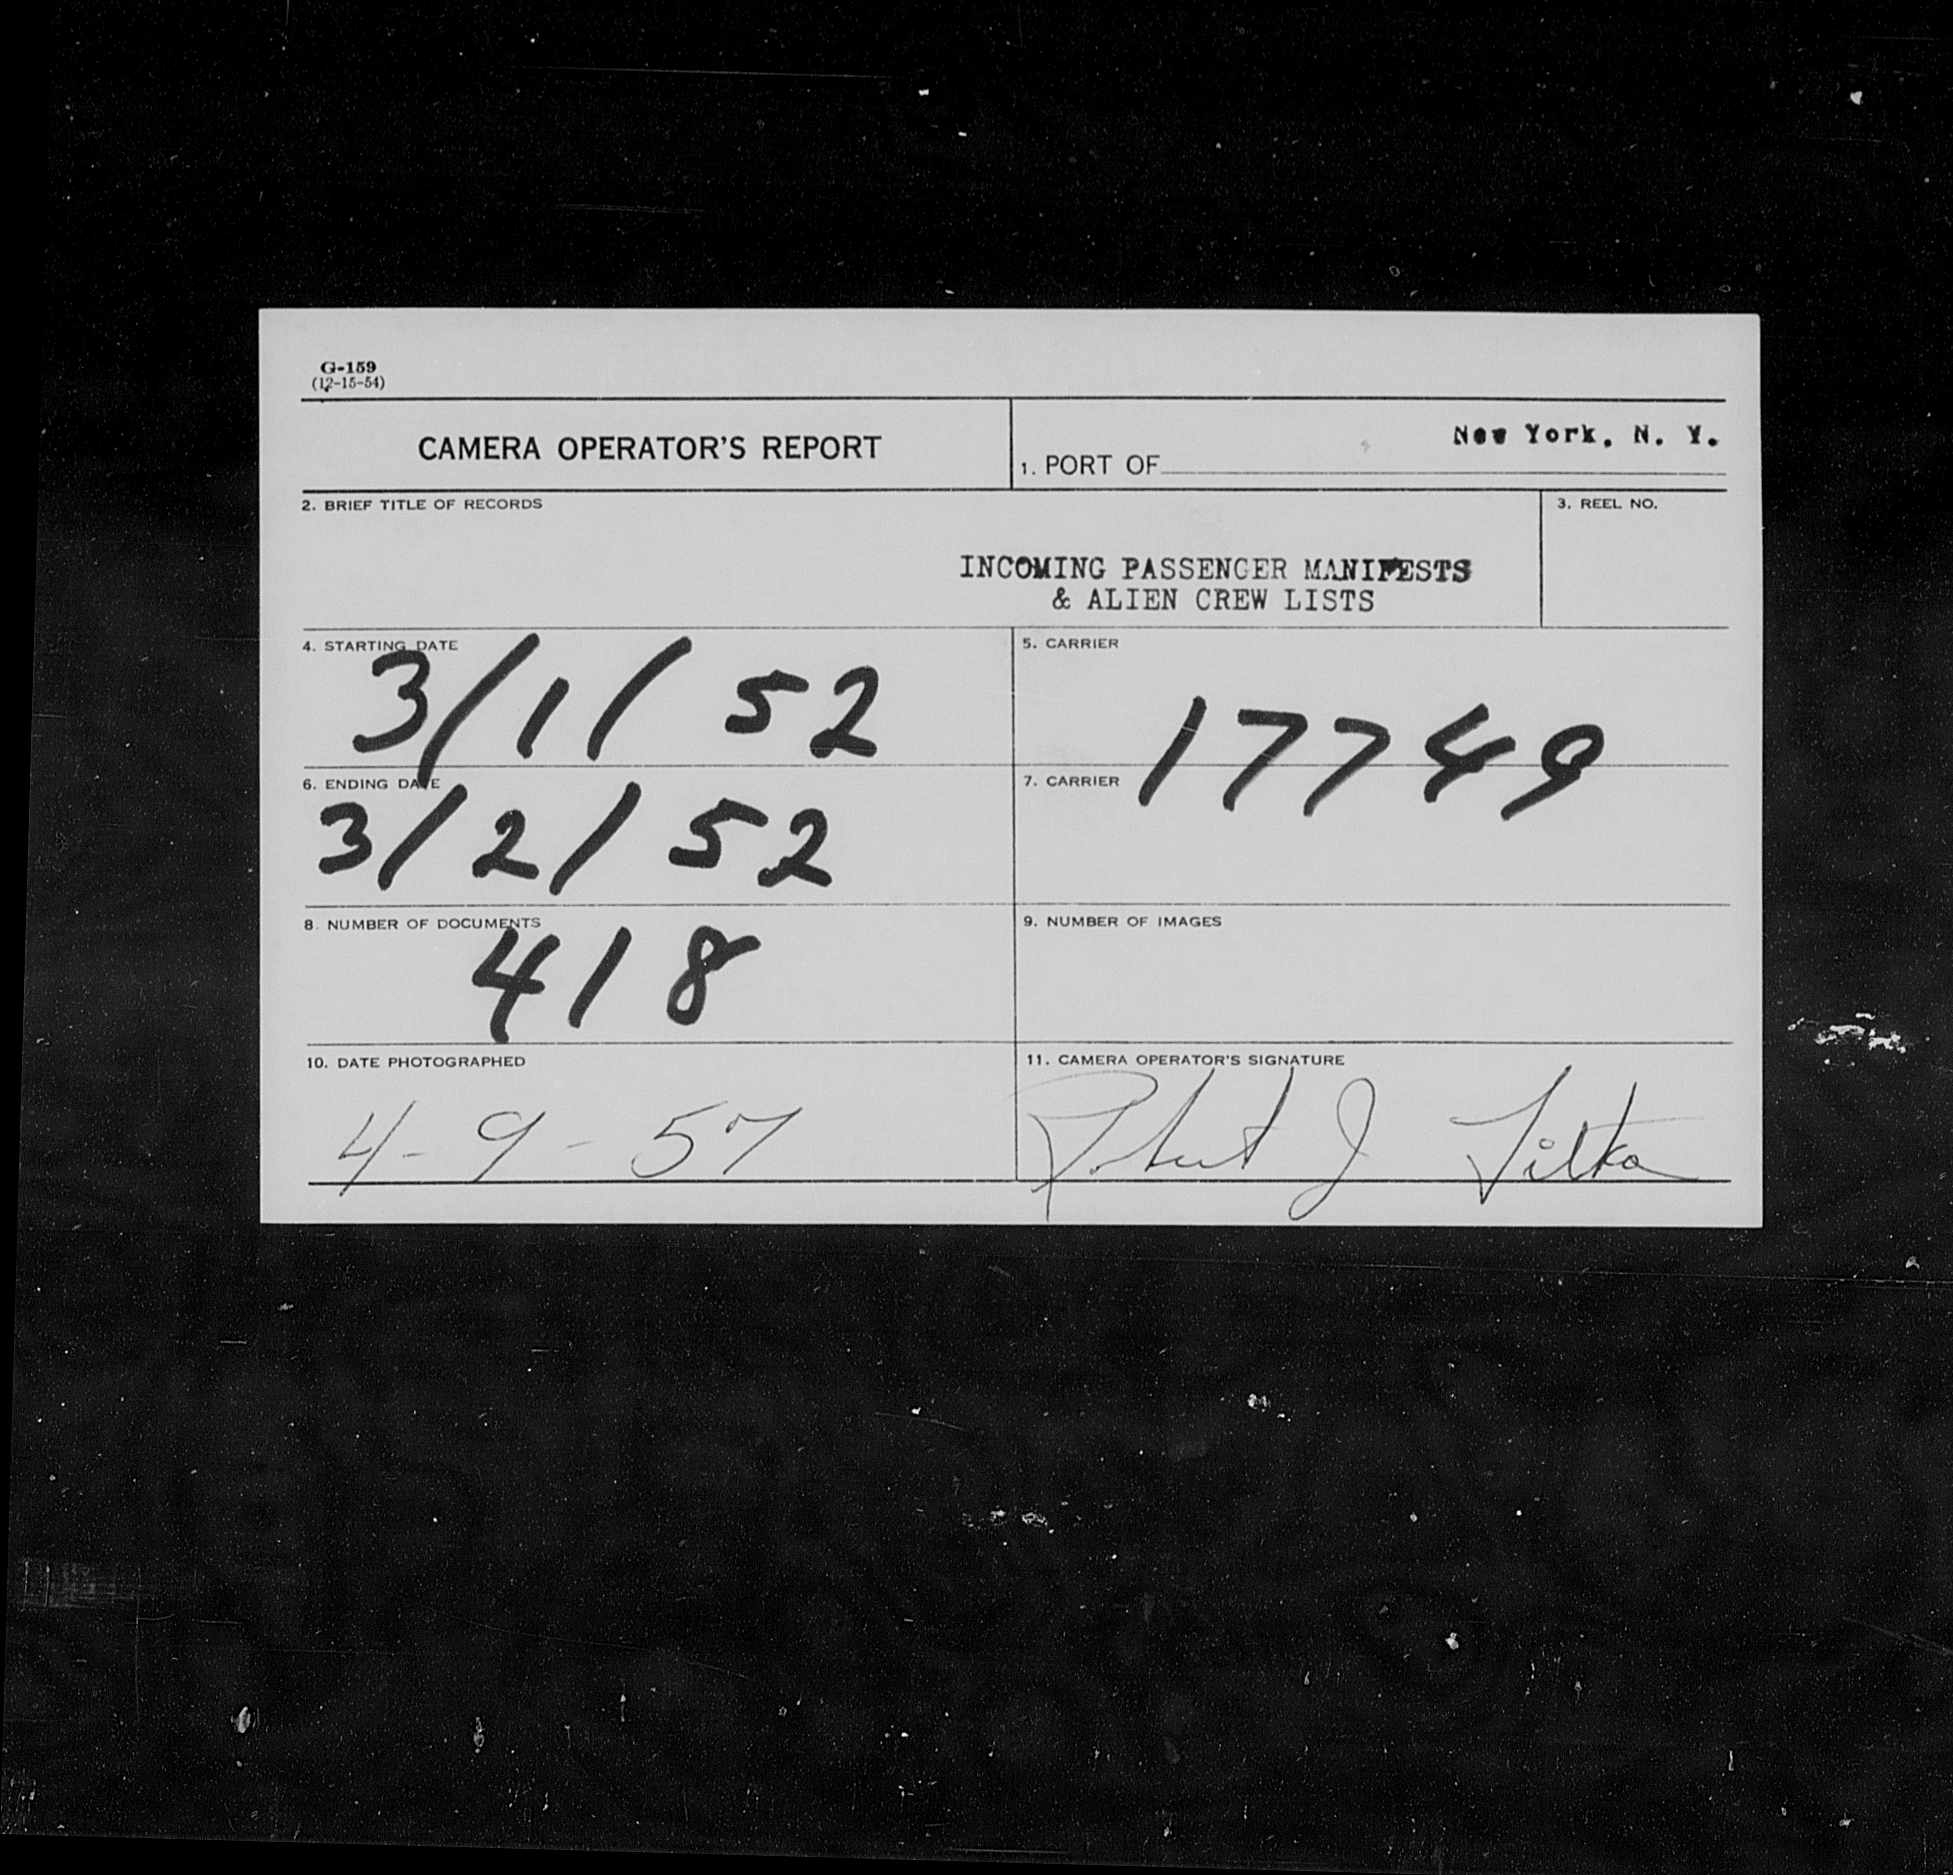 G-159
(12-15-54)
CAMERA OPERATOR'S REPORT
1. PORT OF New York, N. Y.
2. BRIEF TITLE OF RECORDS
INCOMING PASSENGER MANIFESTS
& ALIEN CREW LISTS
3. REEL NO.
4. STARTING DATE
3/1/52
5. CARRIER
17749
6. ENDING DATE
3/2/52
7. CARRIER
8. NUMBER OF DOCUMENTS
418
9. NUMBER OF IMAGES
10. DATE PHOTOGRAPHED
4-9-57
11. CAMERA OPERATOR'S SIGNATURE
Robert J